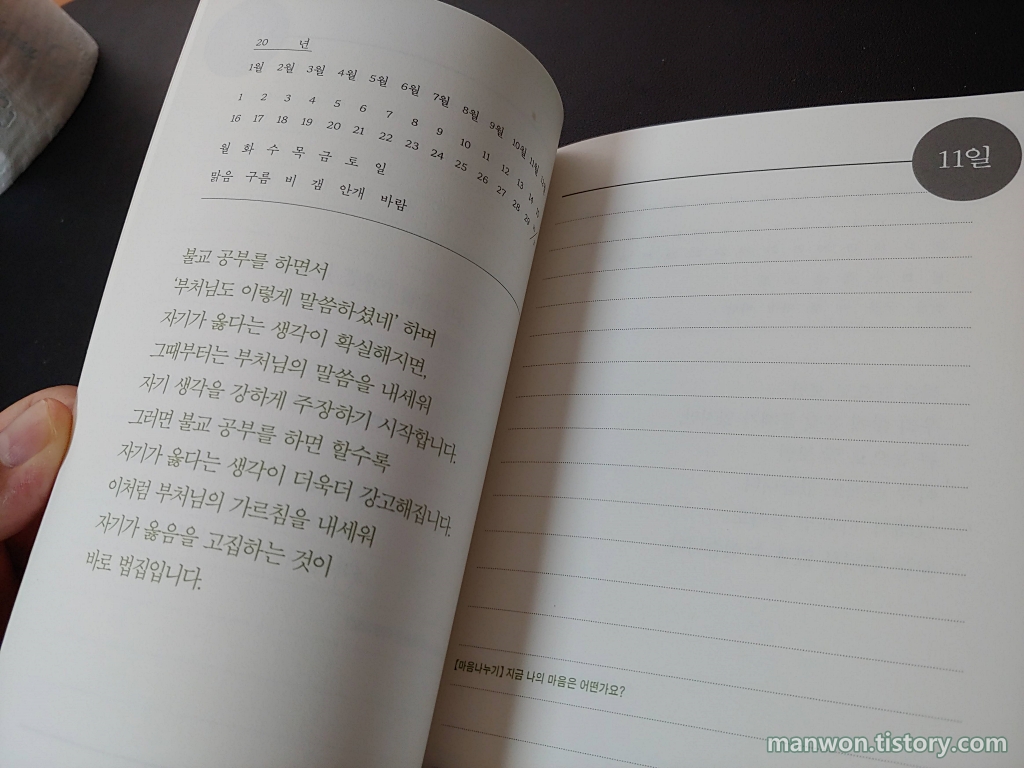 20 년
1월 2월 3월 4월 5월 6월 7월 8월 9월 10월 11월
1 2 3 4 5 6 7 8 9 10 11 12 13 14
16 17 18 19 20 21 22 23 24 25 26 27 28 29
월 화 수 목 금 토 일
맑음 구름 비 갬 안개 바람
불교 공부를 하면서
'부처님도 이렇게 말씀하셨네' 하며
자기가 옳다는 생각이 확실해지면,
그때부터는 부처님의 말씀을 내세워
자기 생각을 강하게 주장하기 시작합니다.
그러면 불교 공부를 하면 할수록
자기가 옳다는 생각이 더욱더 강고해집니다.
이처럼 부처님의 가르침을 내세워
자기가 옳음을 고집하는 것이
바로 법집입니다.
11일
[마음나누기] 지금 나의 마음은 어떤가요?
manwon.tistory.com